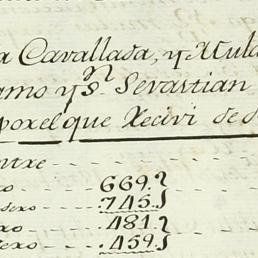 a Cavallada, y Mula
amo y Sn. Sevastian
poxelque Xecivi se d
ntxe - - - -
xo - - - 669.
sexo - - - 745.
xo - - - 481.
sexo - - - 459.